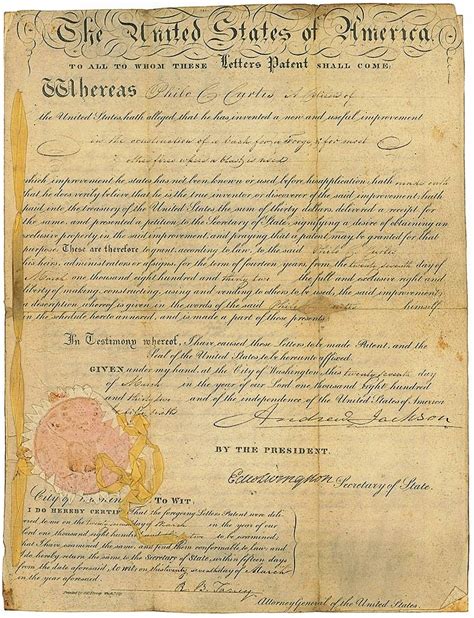 The United States of America,
TO ALL TO WHOM THESE Letters Patent SHALL COME:
Whereas Philo C Curtis A citizen of
the United States, hath alleged that he has invented a new and useful improvement
in the construction of a back for a Forge & for most
other fires where a blast is used
which improvement, he states has not been known or used before his application, hath made oath
that he does verily believe that he is the true inventor or discoverer of the said improvement, hath
paid into the treasury of the United States the sum of thirty dollars, delivered a receipt for
the same, and presented a petition to the Secretary of State, signifying a desire of obtaining an
exclusive property in the said improvement, and praying that a patent may be granted for that
purpose. These are therefore to grant, according to law, to the said Philo C Curtis
his heirs, administrators or assigns, for the term of fourteen years, from the twenty seventh day of
March one thousand eight hundred and thirty two the full and exclusive right and
liberty of making, constructing, using and vending to others to be used, the said improvement,
a description whereof is given in the words of the said Philo C Curtis himself
in the schedule hereto annexed, and is made a part of these presents.
In Testimony whereof, I have caused these Letters to be made Patent, and the
Seal of the United States to be hereunto affixed.
GIVEN under my hand, at the City of Washington, this twenty seventh day
of March in the year of our Lord one thousand eight hundred
and thirty two and of the independence of the United States of America
the fifty sixth
Andrew Jackson
BY THE PRESIDENT.
Edw Livingston Secretary of State.
City of TO WIT:
I DO HEREBY CERTIFY, That the foregoing Letters Patent were deliv-
ered to me on the day of March in the year of our
lord one thousand eight hundred and to be examined;
that I have examined the same, and find them conformable to law; and
I do hereby return the same to the Secretary of State, within fifteen days
from the date aforesaid, to wit: on this twenty seventh day of March
in the year aforesaid.
R B Taney
Attorney General of the United States.